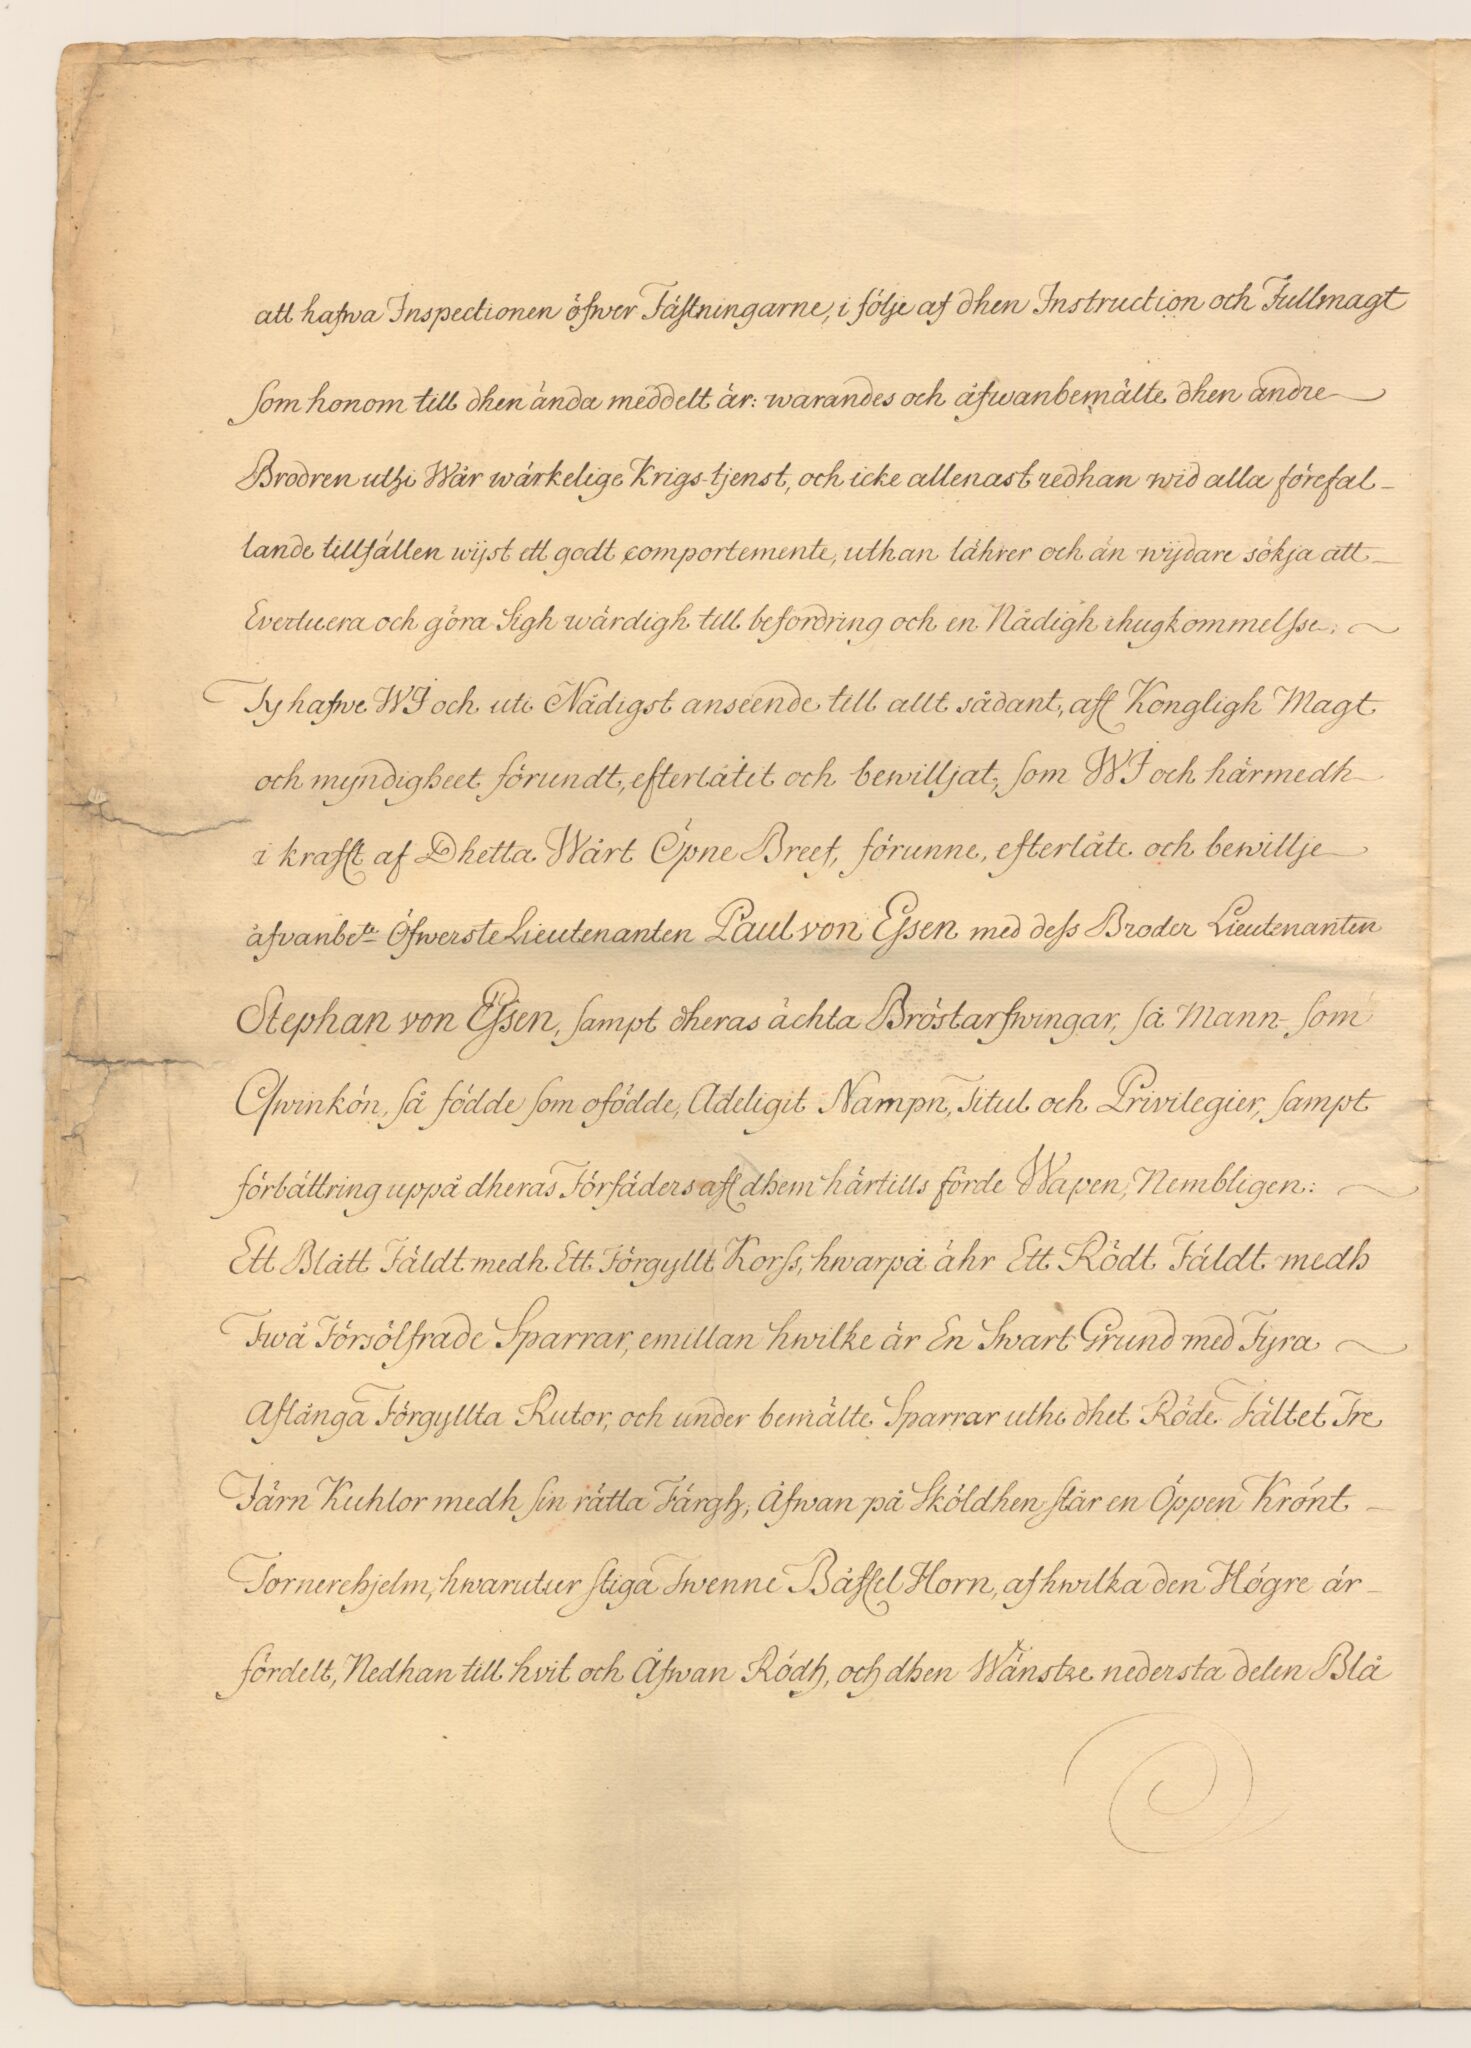 att hafwa Inspectionen öfwer Fästningarne, i följe af dhen Instruction och Fullmagt
som honom till dhen ända meddelt är: warandes och åfwanbemälte dhen andre
Brodren uthi Wår wärkelige Krigs-tjenst, och icke allenast redhan wid alla förefal-
lande tillfällen wijst ett godt comportemente, uthan lährer och än wijdare sökja att
Evertuera och göra sigh wärdigh till befordring och en Nådigh ihugkommelsse.
Ty hafwe WJ och uti Nådigst anseende till allt sådant, aff Kongligh Magt
och myndigheet förundt, efterlåtit och bewilljat, som WJ och härmedh
i krafft af Dhetta Wårt Öpne Breef, förunne, efterlåte och bewillje
åfvanbete Öfwerste Lieutenanten Paul von Essen med dess Broder Lieutenanten
Stephan von Essen, sampt dheras ächta Bröstarfwingar, så Mann- som
Qwinkön, så födde som ofödde, Adeligit Nampn, Titul och Privilegier, sampt
förbättring uppå dheras Förfäders aff dhem härtills förde Wapen, Nembligen:
Ett Blått Fäldt medh Ett Förgyllt Korss, hwarpå ähr Ett Rödt Fäldt medh
Twå Försölfrade Sparrar, emillan hwilke är En Swart Grund med Fyra
Aflånga Förgyllta Rutor, och under bemälte Sparrar uthi dhet Röde Fältet Tre
Järn Kuhlor medh sin rätta Färgh, Åfwan på Sköldhen står en Öppen Krönt
Tornerehjelm, hwarutur stiga Twenne Bäffel Horn, af hwilka den Högre är
fördelt, Nedhan till hvit och Åfwan Rödh, och dhen Wänstre nedersta delen Blå